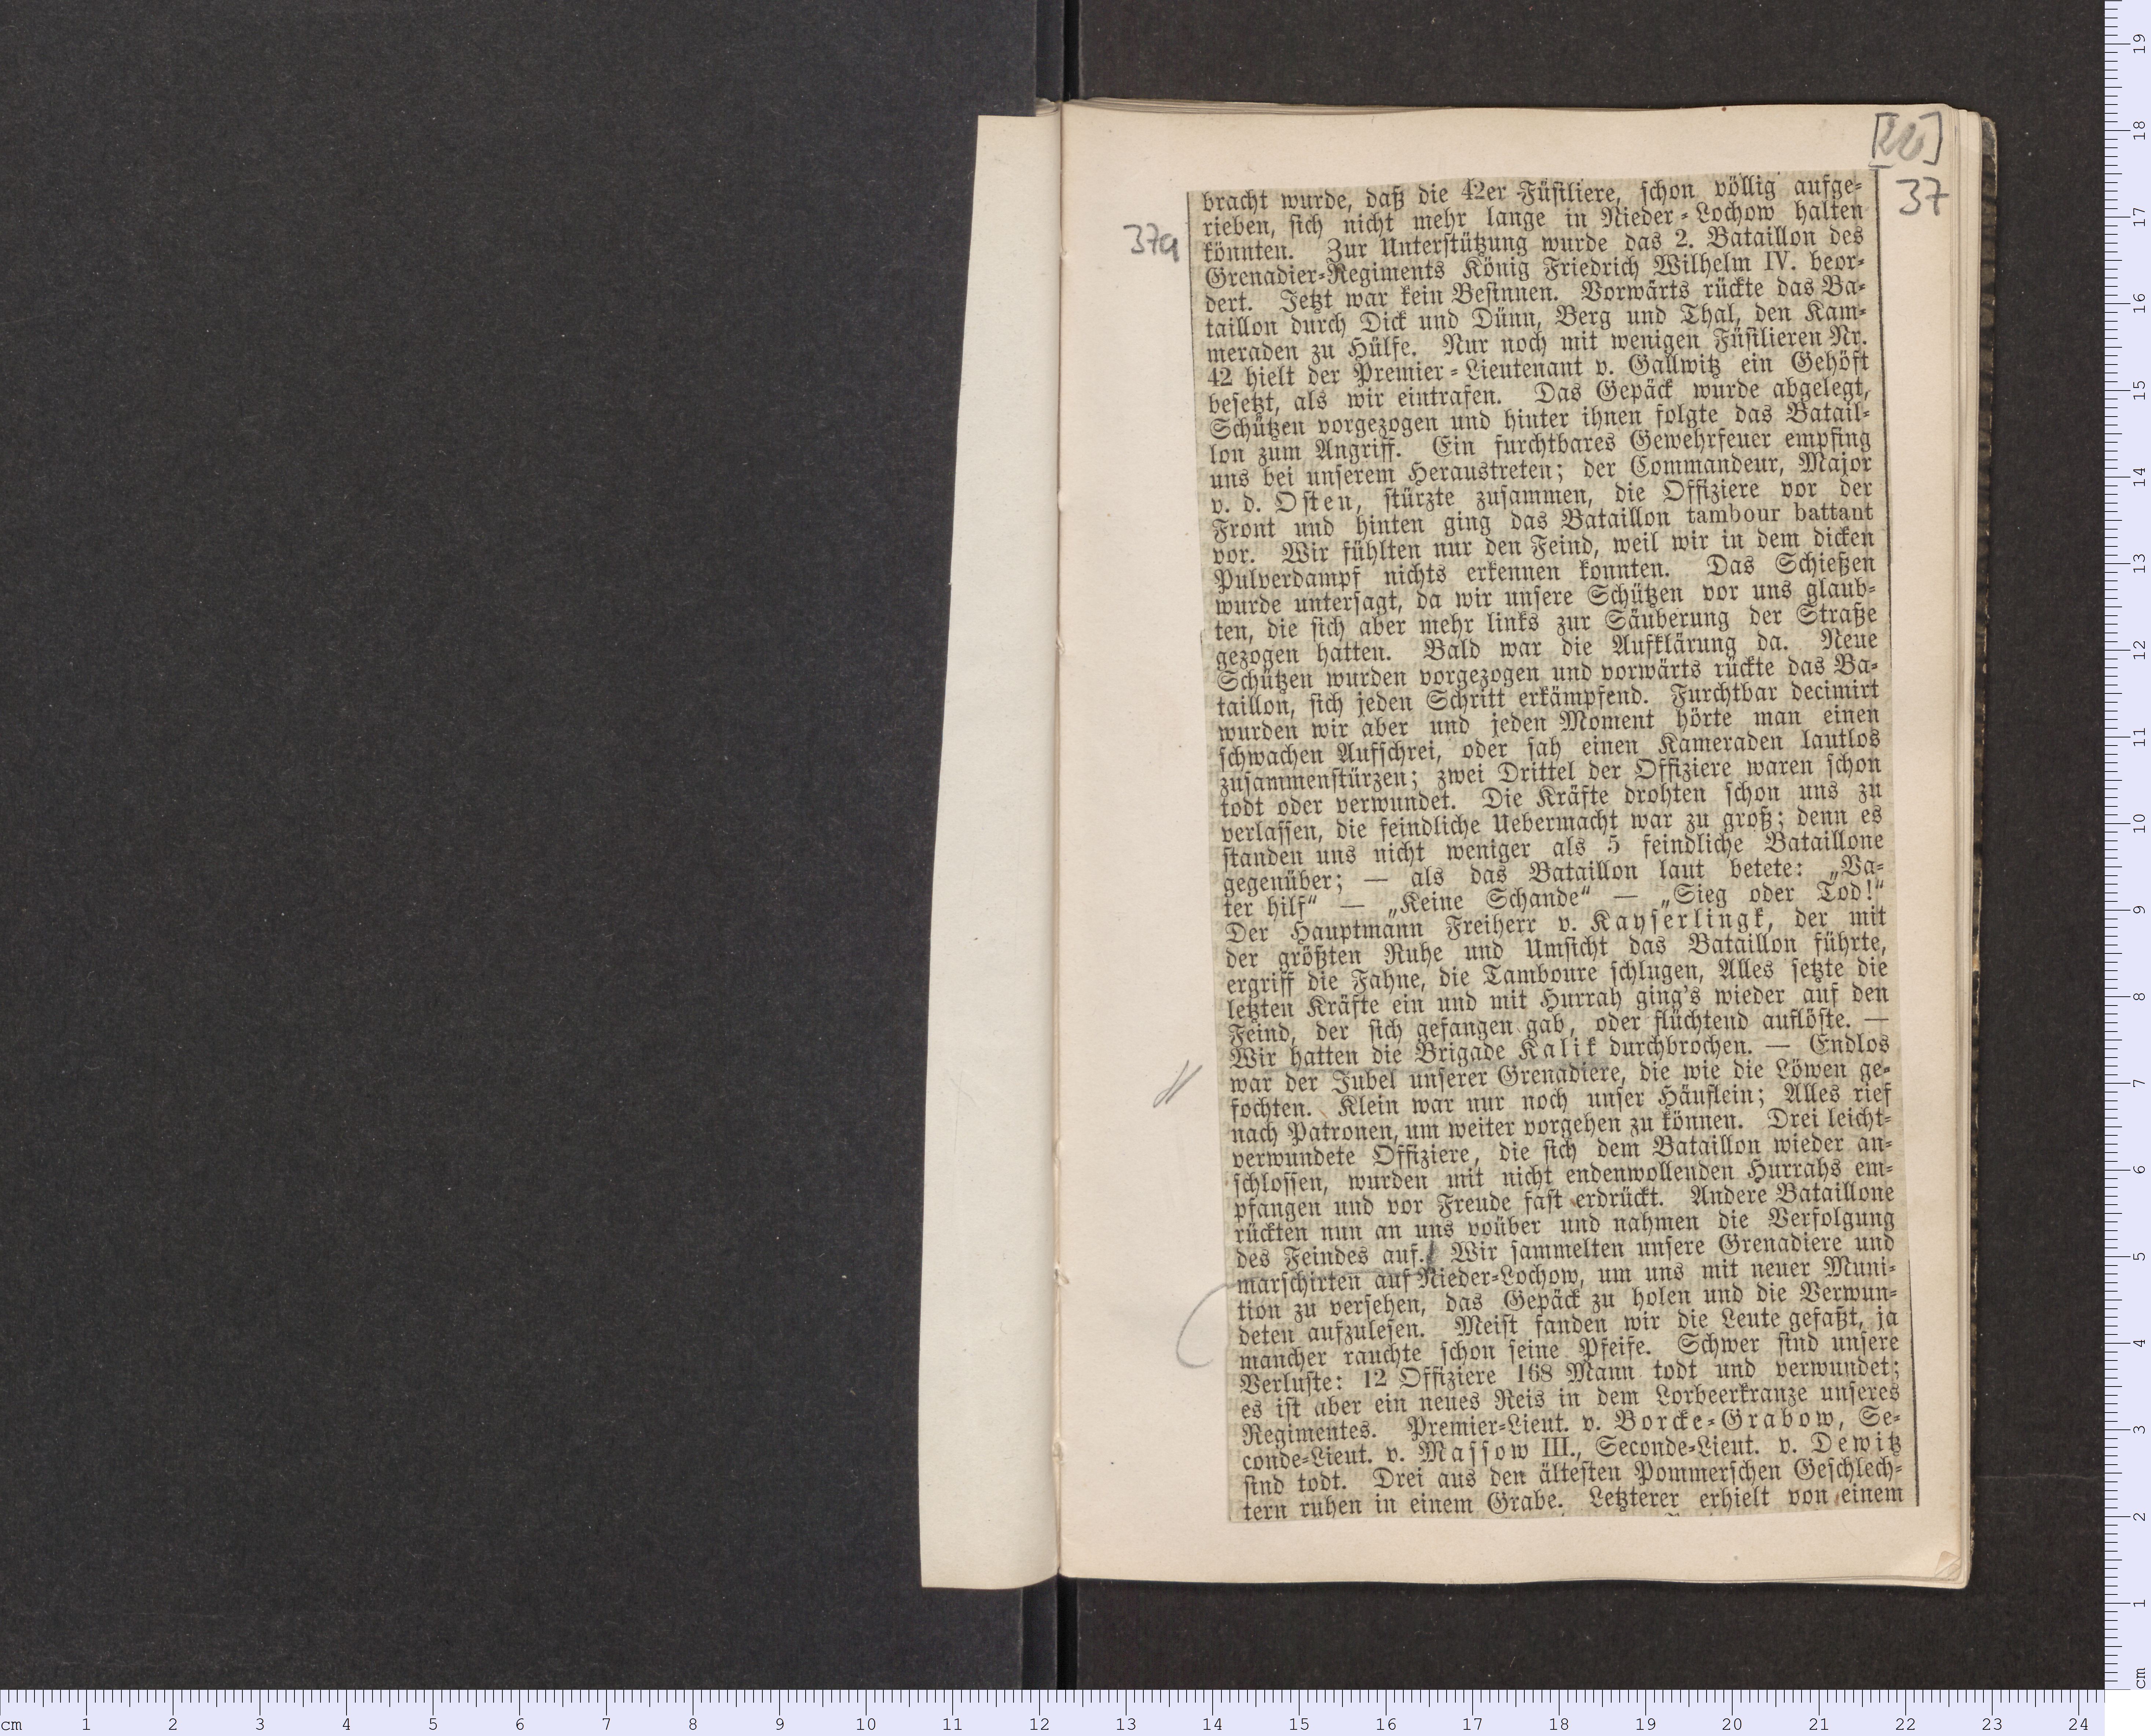 [22]
37
37a
bracht wurde, daß die 42er Füsiliere, schon völlig aufge-
rieben, sich nicht mehr lange in Nieder-Lochow halten
könnten. Zur Unterstützung wurde das 2. Bataillon des
Grenadier-Regiments König Friedrich Wilhelm IV. beor-
dert. Jetzt war kein Besinnen. Vorwärts rückte das Ba-
taillon durch Dick und Dünn, Berg und Thal, den Kam-
meraden zu Hülfe. Nur noch mit wenigen Füsilieren Nr.
42 hielt der Premier-Lieutenant v. Gallwitz ein Gehöft
besetzt, als wir eintrafen. Das Gepäck wurde abgelegt,
Schützen vorgezogen und hinter ihnen folgte das Batail-
lon zum Angriff. Ein furchtbares Gewehrfeuer empfing
uns bei unserem Heraustreten; der Commandeur, Major
v. d. Osten, stürzte zusammen, die Offiziere vor der
Front und hinten ging das Bataillon tambour battant
vor. Wir fühlten nur den Feind, weil wir in dem dicken
Pulverdampf nichts erkennen konnten. Das Schießen
wurde untersagt, da wir unsere Schützen vor uns glaub-
ten, die sich aber mehr links zur Säuberung der Straße
gezogen hatten. Bald war die Aufklärung da. Neue
Schützen wurden vorgezogen und vorwärts rückte das Ba-
taillon, sich jeden Schritt erkämpfend. Furchtbar decimirt
wurden wir aber und jeden Moment hörte man einen
schwachen Aufschrei, oder sah einen Kameraden lautlos
zusammenstürzen; zwei Drittel der Offiziere waren schon
todt oder verwundet. Die Kräfte drohten schon uns zu
verlassen, die feindliche Uebermacht war zu groß; denn es
standen uns nicht weniger als 5 feindliche Bataillone
gegenüber; — als das Bataillon laut betete: „Va-
ter hilf“ — „Keine Schande“ — „Sieg oder Tod!“
Der Hauptmann Freiherr v. Kayserlingk, der mit
der größten Ruhe und Umsicht das Bataillon führte,
ergriff die Fahne, die Tamboure schlugen, Alles setzte die
letzten Kräfte ein und mit Hurrah ging's wieder auf den
Feind, der sich gefangen gab, oder flüchtend auflöste. —
Wir hatten die Brigade Kalik durchbrochen. — Endlos
war der Jubel unserer Grenadiere, die wie die Löwen ge-
fochten. Klein war nur noch unser Häuflein; Alles rief
nach Patronen, um weiter vorgehen zu können. Drei leicht-
verwundete Offiziere, die sich dem Bataillon wieder an-
schlossen, wurden mit nicht endenwollenden Hurrahs em-
pfangen und vor Freude fast erdrückt. Andere Bataillone
rückten nun an uns voüber und nahmen die Verfolgung
des Feindes auf. Wir sammelten unsere Grenadiere und
marschirten auf Nieder-Lochow, um uns mit neuer Muni-
tion zu versehen, das Gepäck zu holen und die Verwun-
deten aufzulesen. Meist fanden wir die Leute gefaßt, ja
mancher rauchte schon seine Pfeife. Schwer sind unsere
Verluste: 12 Offiziere 168 Mann todt und verwundet;
es ist aber ein neues Reis in dem Lorbeerkranze unseres
Regimentes. Premier-Lieut. v. Borcke-Grabow, Se-
conde-Lieut. v. Massow III., Seconde-Lieut. v. Dewitz
sind todt. Drei aus den ältesten Pommerschen Geschlech-
tern ruhen in einem Grabe. Letzterer erhielt von einem
cm 1 2 3 4 5 6 7 8 9 10 11 12 13 14 15 16 17 18 19 20 21 22 23 24
cm 1 2 3 4 5 6 7 8 9 10 11 12 13 14 15 16 17 18 19